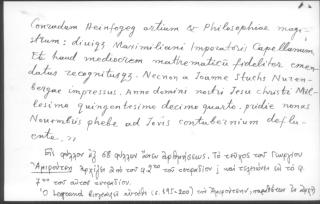 Conradum Heinfogeg artium & Philosophiae magi-
strum: diuiq3 Maximiliani Imperatoris Capellanum
Et haud mediocrem mathematicū fideliter emen
datus recognitusq3. Necnon a Joanne Stuchs Nuren-
bergae impressus. Anno domini nostri Jesu christi Mil-
lesimo quingentesimo decimo quarto. pridie nonas
Nouembris phebe ad Jovis contubernium deflu-
ente.,,
Εἰς φύλλον ἐξ 68 φύλλων ἄνευ ἀριθμήσεως. Τὸ τεῦχος τοῦ Γεωργίου
Ἀμιρούτζη ἀρχίζει ἀπὸ τοῦ φ. 2 τοῦ τετραδίου καὶ τελειώνει εἰς τὸ φ.
7 τοῦ αὐτοῦ τετραδίου.
Ὁ Legrand (σ. 195-200) τὸν Ἀμιρούτζην,